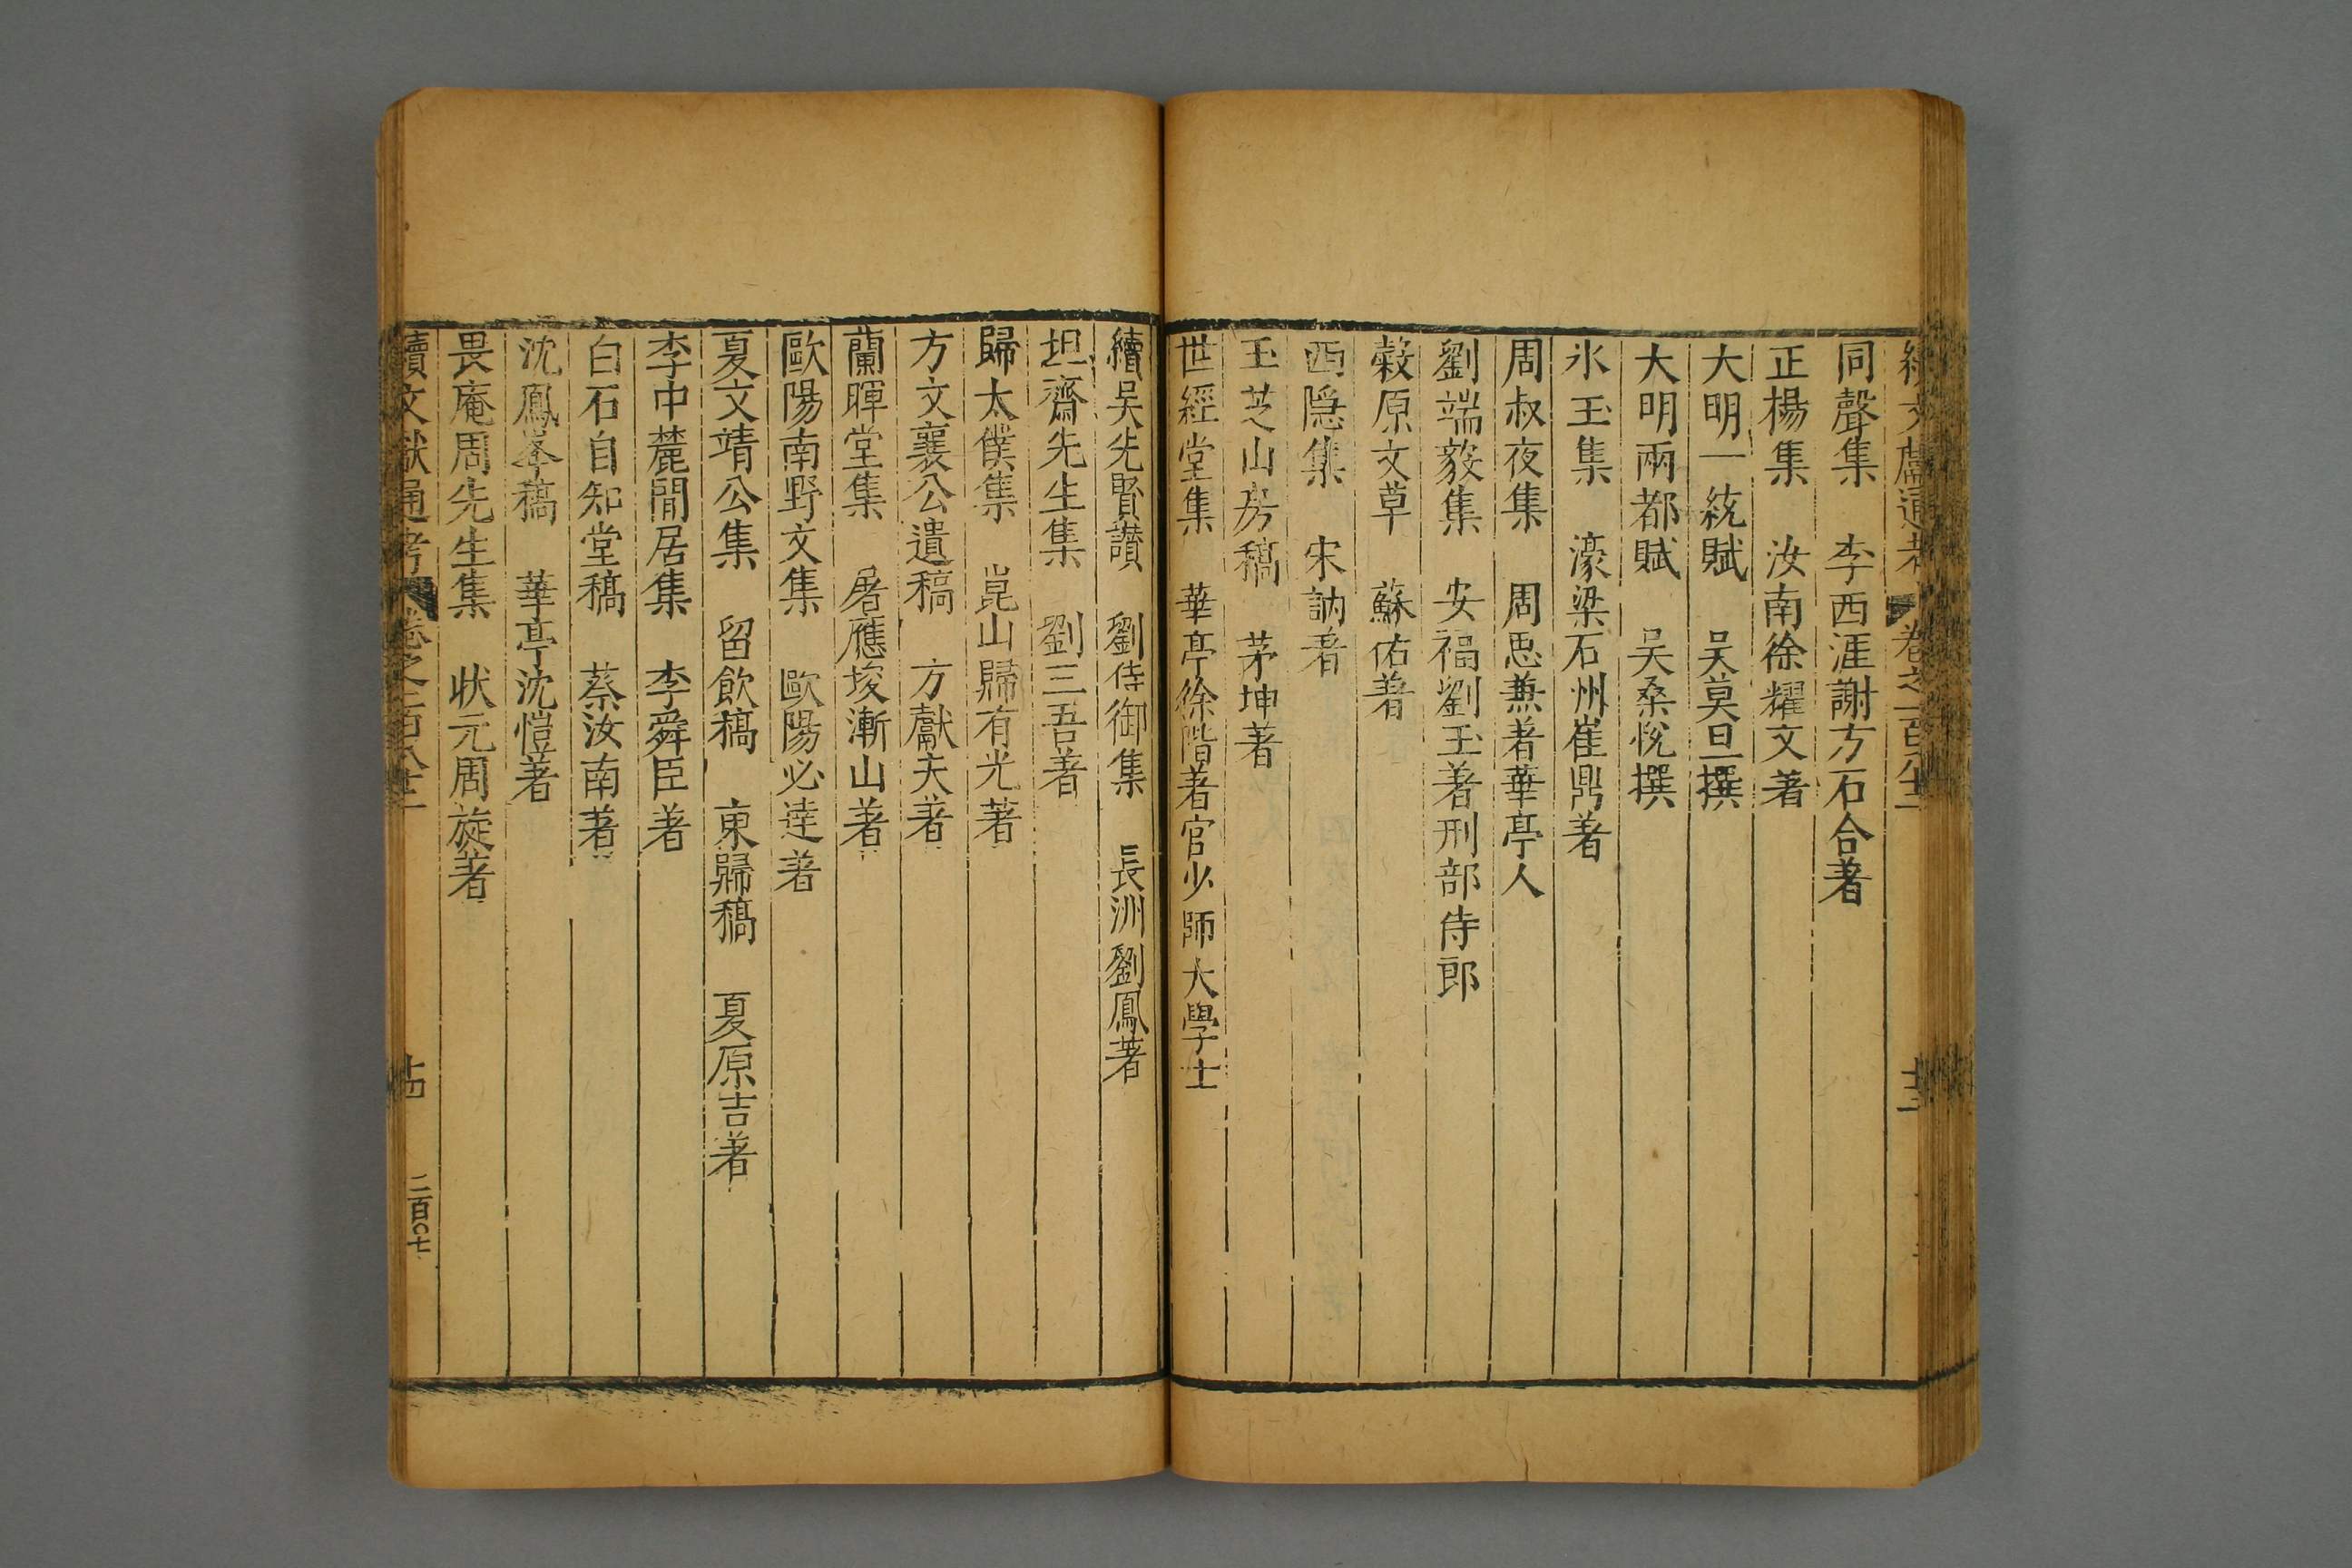 續文獻通考 卷之一百八十二 十三
同聲集 李西涯謝方石合著
正楊集 汝南徐耀文著
大明一統賦 吴莫旦撰
大明兩都賦 吴桑悅撰
氷玉集 濠梁石州崔鼎著
周叔夜集 周思兼著華亭人
劉端毅集 安福劉玉著刑部侍郎
穀原文草 蘇佑著
西隱集 宋訥著
玉芝山房稿 茅坤著
世經堂集 華亭徐階著官少師大學士
續吴先賢讃 劉侍御集 長洲劉鳳著
坦齋先生集 劉三吾著
歸太僕集 崑山歸有光著
方文襄公遺稿 方獻夫著
蘭暉堂集 屠應埈漸山著
歐陽南野文集 歐陽必逹著
夏文靖公集 留飲稿 東歸稿 夏原吉著
李中麓閒居集 李舜臣著
白石自知堂稿 蔡汝南著
沈鳳峯稿 華亭沈愷著
畏庵周先生集 状元周旋著
續文獻通考 卷之一百八十二 十四 二百〇七